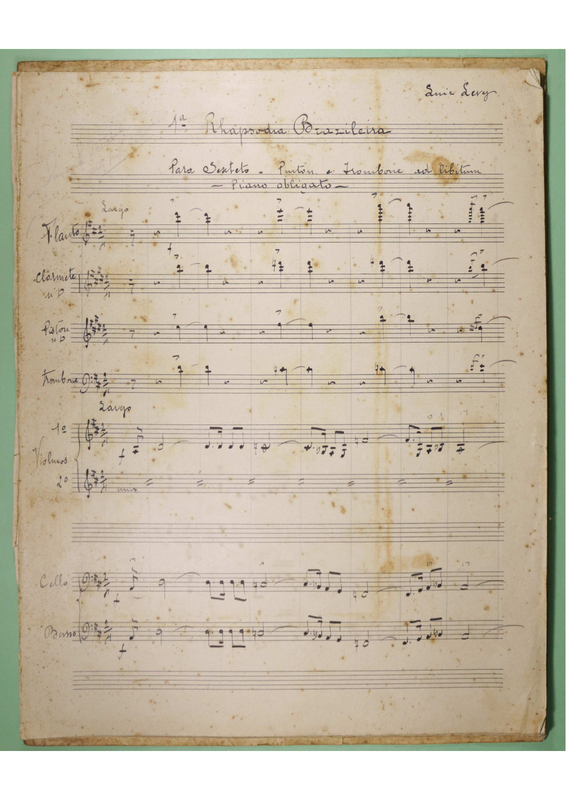 Luiz Levy
1ª Rhapsodia Brazileira
Para Sexteto - Piston e Trombone ad libitum
— Piano obligato —
Largo
Flauto
Clarinete
Piston
Trombone
Largo
1º
Violinos
2º
unis
Cello
Basso